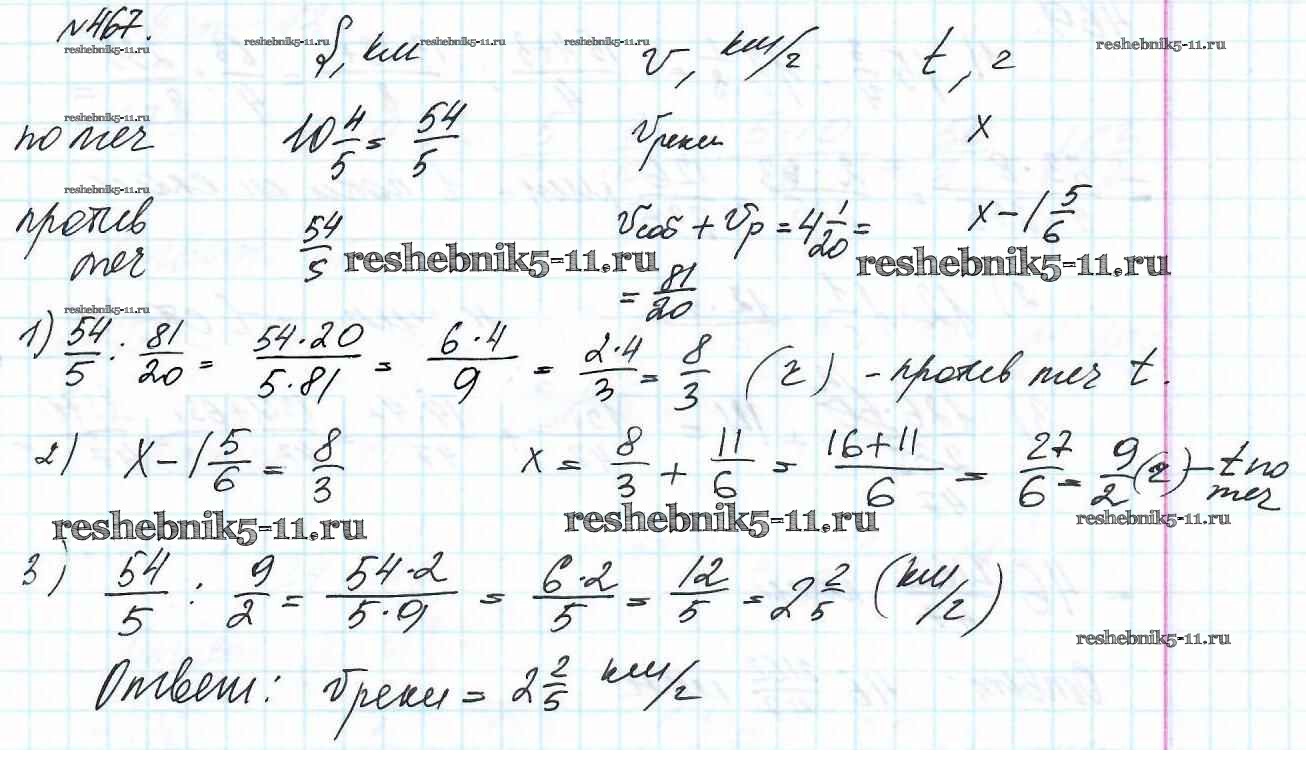 №467.
reshebnik5-11.ru reshebnik5-11.ru reshebnik5-11.ru reshebnik5-11.ru reshebnik5-11.ru
S, км v, км/г t, г
reshebnik5-11.ru
по теч 10 4/5 = 54/5 vреки x
reshebnik5-11.ru
против теч 54/5 vсоб + vр = 4 1/20 = x - 1 5/6
reshebnik5-11.ru reshebnik5-11.ru
= 81/20
reshebnik5-11.ru
1) 54/5 : 81/20 = 54·20/5·81 = 6·4/9 = 2·4/3 = 8/3 (г) - против теч t.
2) x - 1 5/6 = 8/3 x = 8/3 + 11/6 = 16+11/6 = 27/6 = 9/2 (г) - t по теч
reshebnik5-11.ru reshebnik5-11.ru reshebnik5-11.ru
3) 54/5 : 9/2 = 54·2/5·9 = 6·2/5 = 12/5 = 2 2/5 (км/г)
reshebnik5-11.ru
Ответ: vреки = 2 2/5 км/г